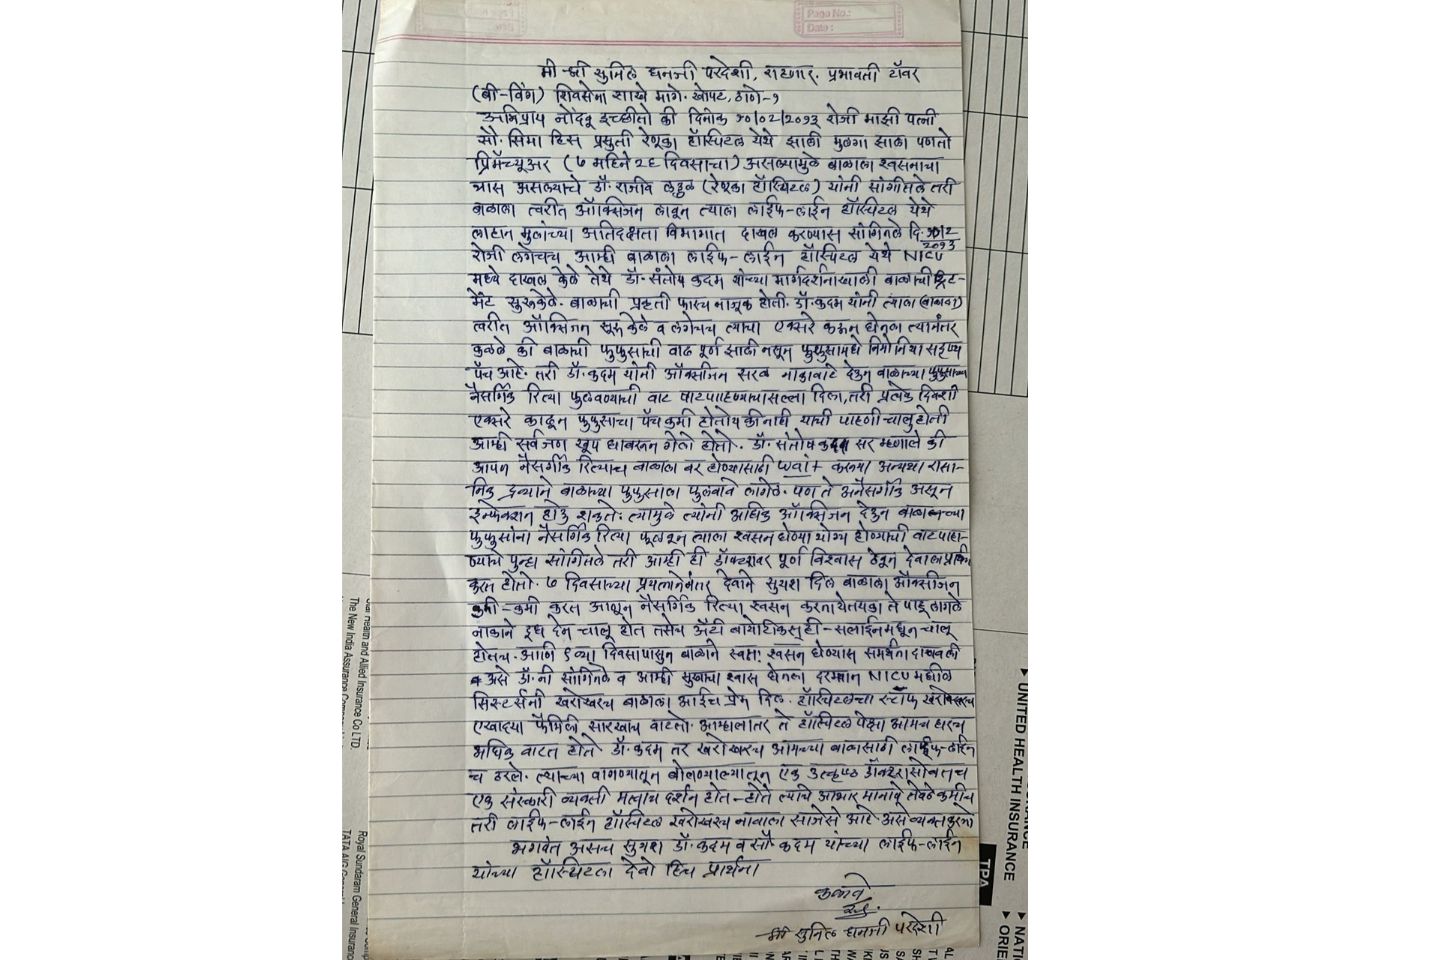 Page No.:
Date :
मी श्री सुनिल धनजी परदेशी, राहणार. प्रभावती टॉवर
(बी-विंग) शिवसेना शाखे मागे. खोपट, ठाणे-१
अभिप्राय नोंदवू इच्छीतो की दिनांक १०/०२/२०१३ रोजी माझी पत्नी
सौ. सिमा हिस प्रसुती रेणूका हॉस्पिटल येथे झाली मुलगा झाला पण तो
प्रिमॅच्यूअर (७ महिने २६ दिवसाचा) असल्यामुळे बाळाला श्वसनाचा
त्रास असल्याचे डॉ. राजीव (रेणूका हॉस्पिटल) यांनी सांगीतले तरी
बाळाला त्वरीत ऑक्सिजन लावून त्याला लाईफ-लाईन हॉस्पिटल येथे
लाहान मुलांच्या अतिदक्षता विभागात दाखल करण्यास सांगितले दि. १०/२
२०१३
रोजी लगेचच आम्ही बाळाला लाईफ-लाईन हॉस्पिटल येथे NICU
मध्ये दाखल केले तेथे डॉ. संतोष कदम यांच्या मार्गदर्शनाखाली बाळाची ट्रिट-
मेंट सुरु केले. बाळाची प्रकृती फारच नाजूक होती. डॉ. कदम यांनी त्याला (बाळाला)
त्वरीत ऑक्सिजन सूरु केले व लगेचच त्याचा एक्सरे काढून घेतला त्यानंतर
कळले की बाळाची फुफुसाची वाढ पूर्ण झाली नसून फुफुसामधे निमोनिया सदृष्य
पॅच आहे. तरी डॉ. कदम यांनी ऑक्सजिन सरळ नाकावाटे देऊन बाळाच्या फुफुसाच्या
नैसर्गिक रित्या फुलवण्याची वाट वाटपाहण्याचा सल्ला दिला, तरी प्रत्येक दिवशी
एक्सरे काढून फुफुसाचा पॅच कमी होतोय की नाही याची पाहणी चालु होती
आम्ही सर्वजण खूप घाबरुन गेलो होतो. डॉ. संतोष कदम सर म्हणाले की
आपण नैसर्गिक रित्याच बाळाला बरं होण्यासाठी wait करुया अन्यथा रासा-
निक द्रव्याने बाळाच्या फुफुसाला फुलवावे लागेल. पण ते अनैसर्गीक असून
इन्फेक्शन होऊ शकते. त्यामुळे त्यांनी अधिक ऑक्सिजन देऊन बाळाच्या
फुफुसांना नैसर्गिक रित्या फूलवून त्याला श्वसन घेण्या योग्य होण्याची वाट पाहा-
ण्याचे पुन्हा सांगितले तरी आम्ही ही डॉक्टरांवर पूर्ण विश्वास ठेवून देवाला प्रार्थना
करत होतो. ७ दिवसाच्या प्रयत्नानंतर देवाने सुयश दिल बाळाला ऑक्सीजन
कमी-कमी करत आणून नैसर्गिक रित्या श्वसन करता येतय का ते पाहू लागले
नाकाने दूध देन चालू होत तसेच अँटी बायोटिकस् ही-सलाईनमधून चालू
होतच. आणि ८ व्या दिवसापासुन बाळाने स्वतः श्वसन घेण्यास समर्थता दाखवली
व असे डॉ. नी सांगितले व आम्ही सुखाचा श्वास घेतला दरम्यान NICU मधील
सिस्टर्सनी खरोखरच बाळाला आईच प्रेम दिल. हॉस्पिटलचा स्टाफ खरोखरच
एखाद्या फॅमिली सारखाच वाटतो. आम्हाला तर ते हॉस्पिटल पेक्षा आमच घरच
अधिक वाटत होते डॉ. कदम तर खरोखरच आमच्या बाळासाठी लाईफ-लाईन
च ठरले. त्याच्या वागण्यातून बोलण्यातून एक उत्कृष्ठ डॉक्टरासोबतच
एक संस्कारी व्यक्ती मत्वाच दर्शन होत-होते त्यांचे आभार मानावे तेवढे कमीच
तरी लाईफ-लाईन हॉस्पिटल खरोखरच नावाला साजेसे आहे असे व्यक्त करतो
भगवंत असच सुयश डॉ. कदम व सौ कदम यांच्या लाईफ-लाईन
यांच्या हॉस्पिटला देवो हिच प्रार्थना
कळावे
मी सुनिल धनजी परदेशी
The New India Assurance
Health and Allied Insurance Co LTD.
Royal Sundaram General Insurance
TATA AIG
UNITED HEALTH INSURANCE
TPA